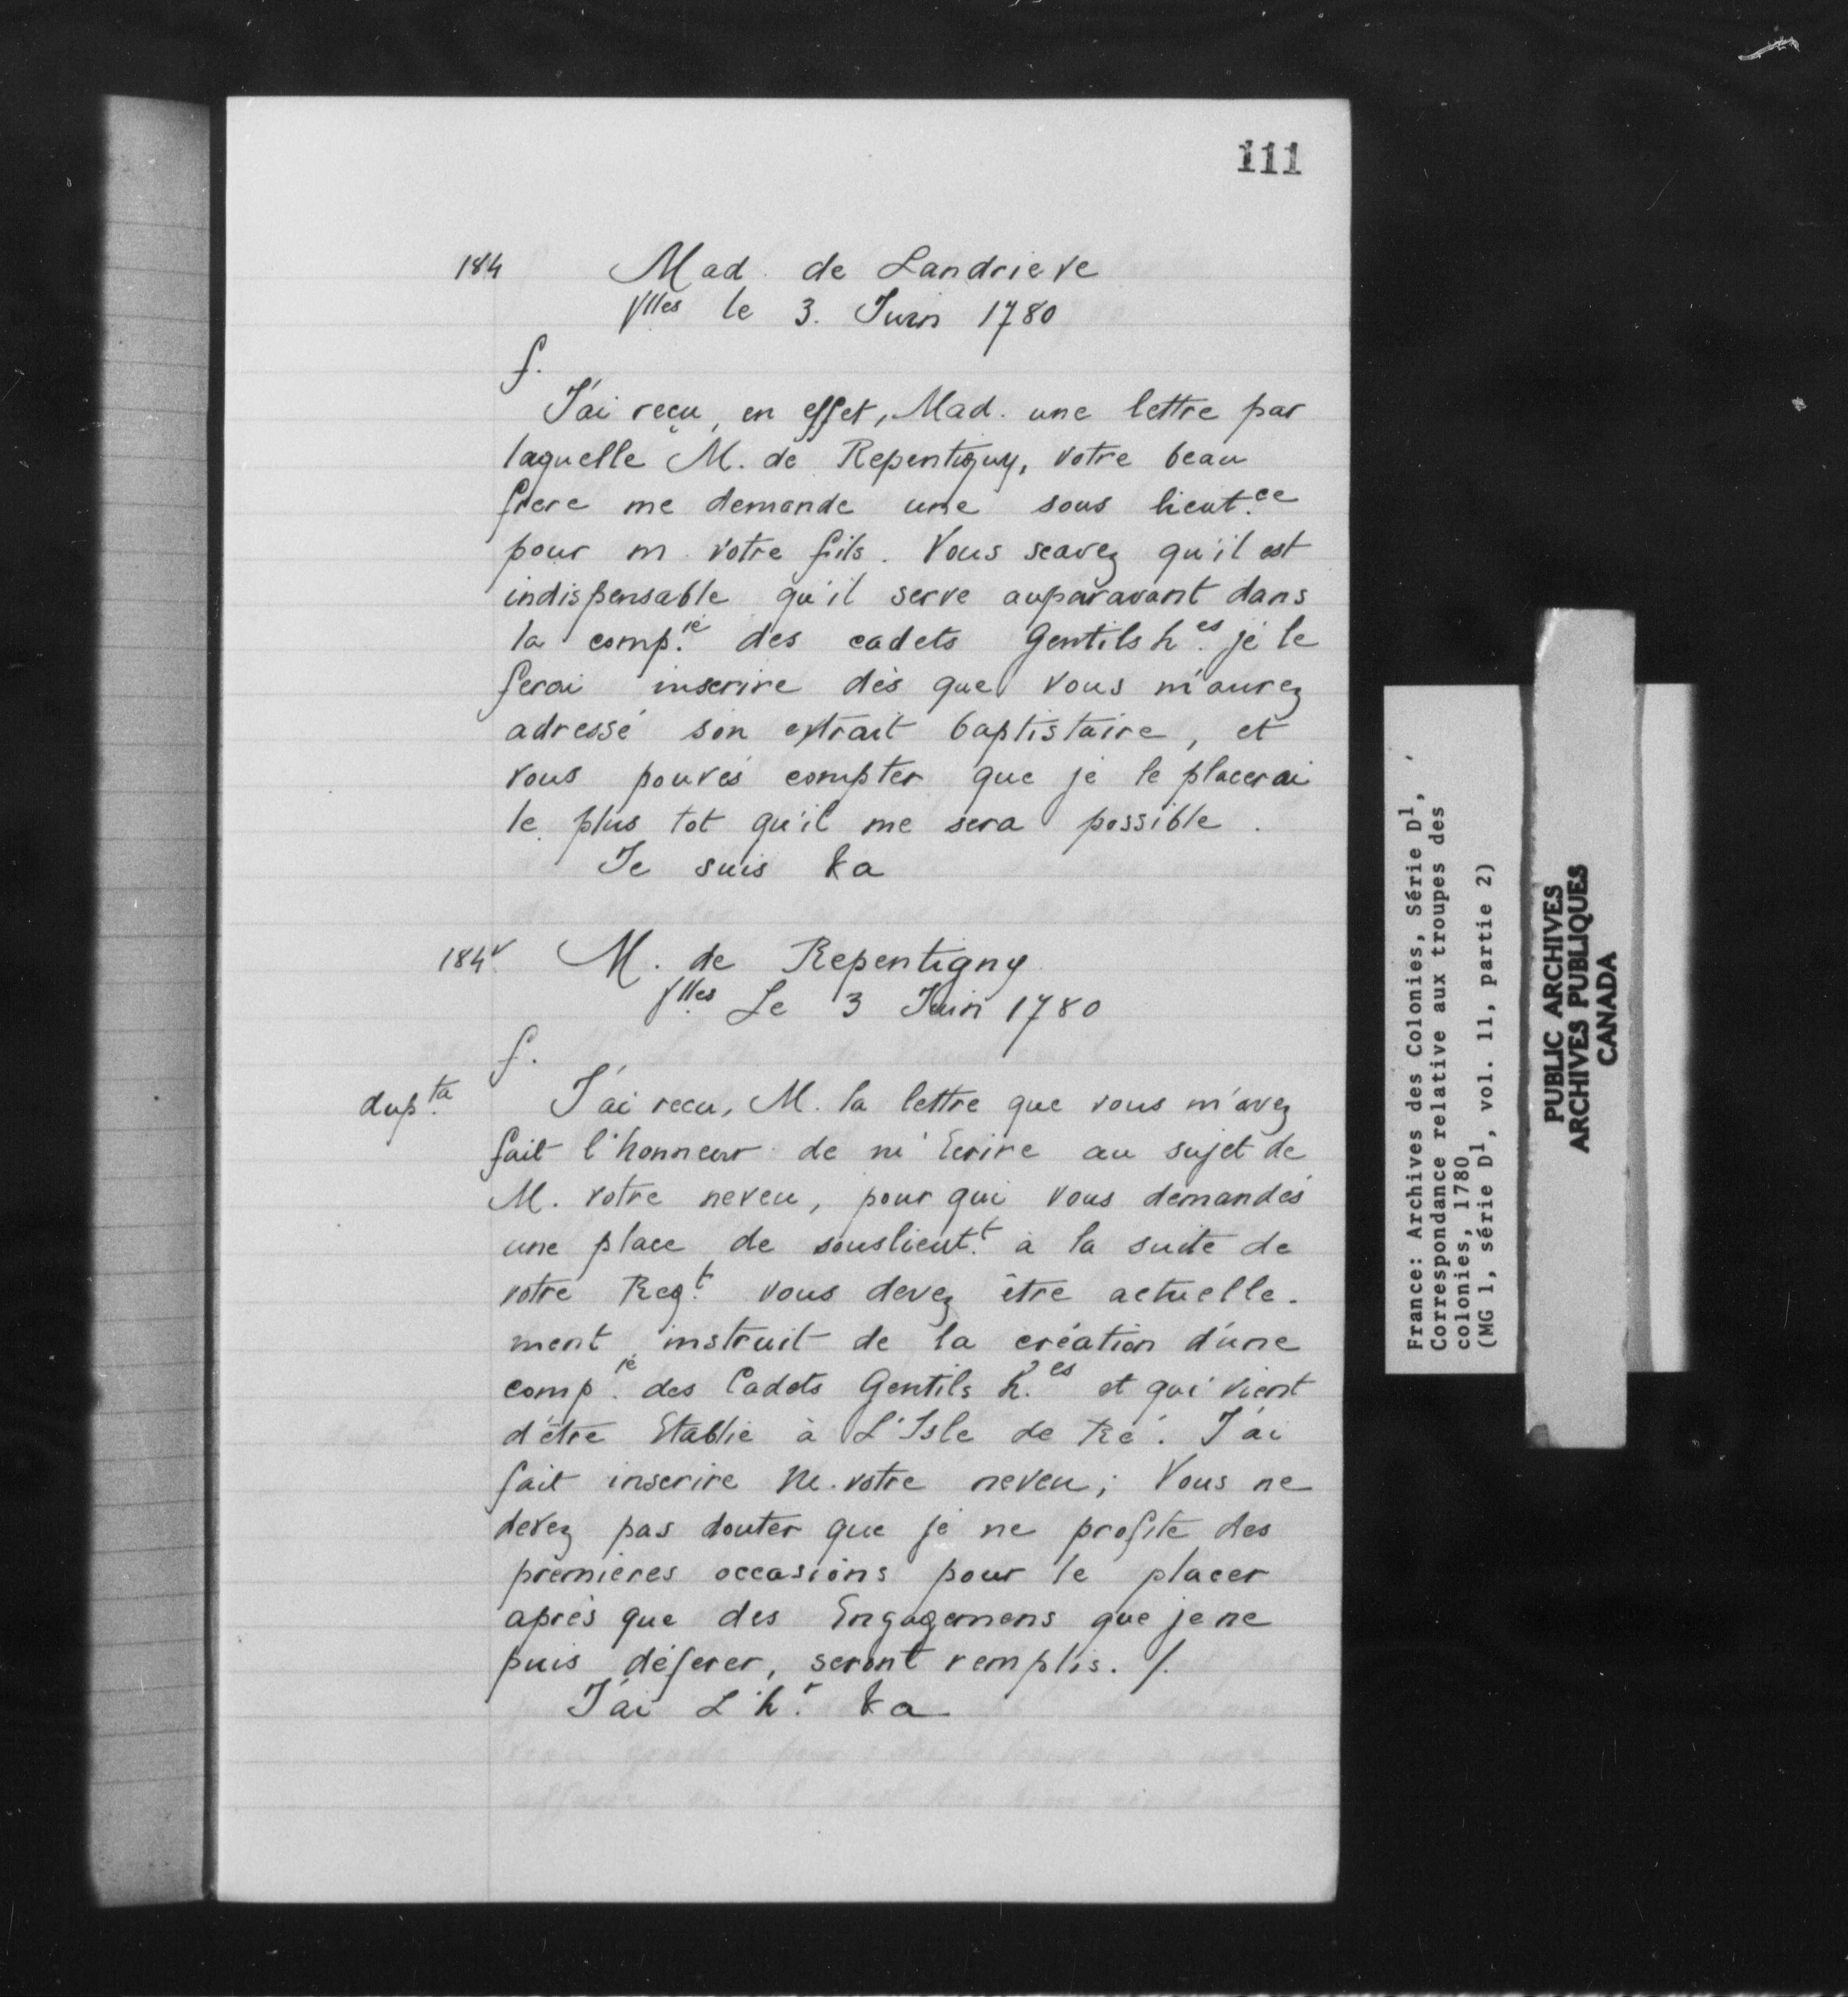 111
184 Mad. de Landrieve
Vlles le 3. Juin 1780
f.
J'ai reçu, en effet, Mad. une lettre par
laquelle M. de Repentigny, votre beau
frere me demande une sous lieut.ce
pour m. votre fils. Vous scavez qu'il est
indispensable qu'il serve auparavant dans
la comp.ie des cadets Gentils h.es je le
ferai inscrire dès que vous m'aurez
adressé son extrait baptistaire, et
vous pouvés compter que je le placerai
le plus tot qu'il me sera possible.
Je suis &a
184v M. de Repentigny
Vlles Le 3 Juin 1780
f.
dup.ta J'ai recu, M. la lettre que vous m'avez
fait l'honneur de m'Ecrire au sujet de
M. votre neveu, pour qui vous demandés
une place de souslieut.t à la suite de
votre Reg.t vous devez être actuelle-
ment instruit de la création d'une
comp.ie des Cadets Gentils h.es et qui vient
d'être Etablie à L'Isle de Ré. J'ai
fait inscrire M. votre neveu; Vous ne
devez pas douter que je ne profite des
premieres occasions pour le placer
après que des Engagemens que je ne
puis déferer, seront remplis. /.
J'ai L'h.r &a
France: Archives des Colonies, Série D1,
Correspondance relative aux troupes des
colonies, 1780
(MG 1, série D1, vol. 11, partie 2)
PUBLIC ARCHIVES
ARCHIVES PUBLIQUES
CANADA